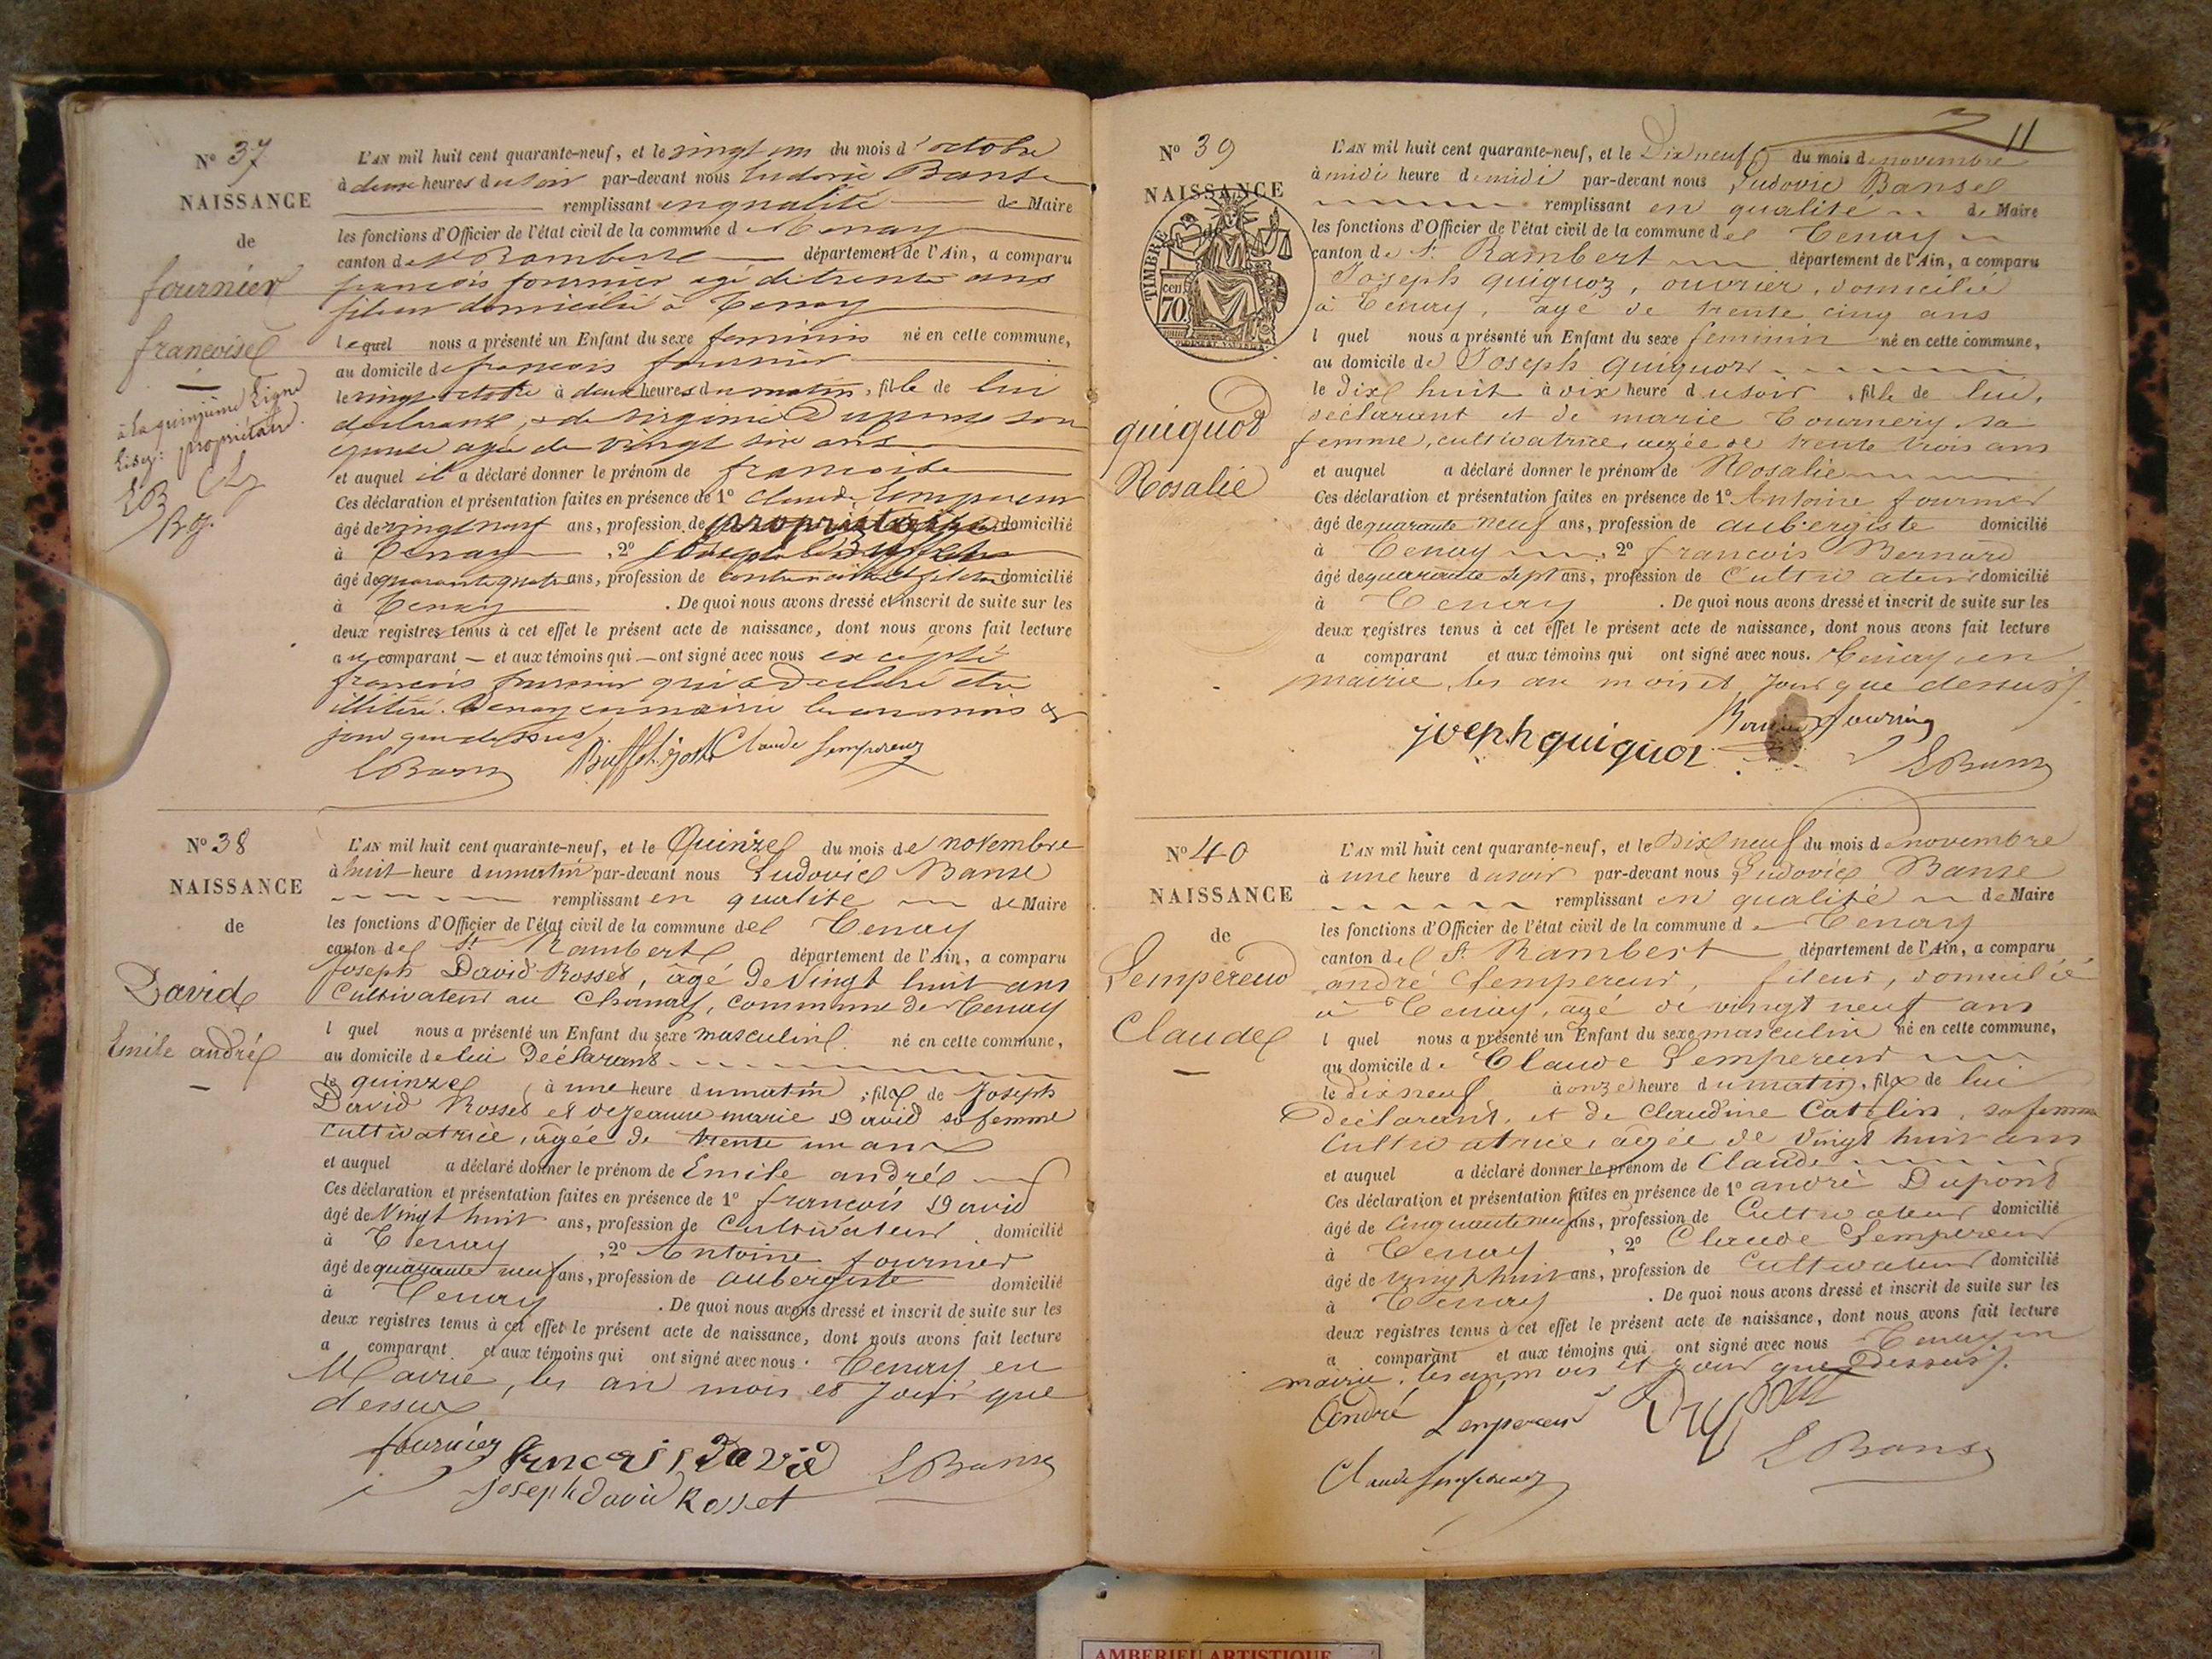 N° 37
NAISSANCE
de
fournier
francoise
à la quinzième Ligne
Lisez: propriétaire.
L'AN mil huit cent quarante-neuf, et le vingt un du mois d'octobre
à deux heures du soir par-devant nous Ludovic Banse
remplissant en qualité de Maire
les fonctions d'Officier de l'état civil de la commune de Tenay
canton de St Rambert département de l'Ain, a comparu
francois fournier agé de trente ans
fileur domicilié à Tenay
lequel nous a présenté un Enfant du sexe feminin né en cette commune,
au domicile de francois fournier
le vingt octobre à deux heures du matin, fille de lui
declarant, & de virginie Dupont son
epouse agée de vingt six ans
et auquel il a déclaré donner le prénom de francoise
Ces déclaration et présentation faites en présence de 1° Claude Lempereur
âgé de vingt neuf ans, profession de propriétaire domicilié
à Tenay , 2° joseph
âgé de quarante quatre ans, profession de domicilié
à Tenay . De quoi nous avons dressé et inscrit de suite sur les
deux registres tenus à cet effet le présent acte de naissance, dont nous avons fait lecture
au comparant — et aux témoins qui — ont signé avec nous excepté
francois fournier qui a declaré etre
illitéré. Tenay en mairie les an mois &
jour que dessus
LBanse Claude Lempereur
N° 38
NAISSANCE
de
David
Emile andré
L'AN mil huit cent quarante-neuf, et le Quinze du mois de novembre
à huit heure du matin par-devant nous Ludovic Banse
remplissant en qualité de Maire
les fonctions d'Officier de l'état civil de la commune de Tenay
canton de St Rambert département de l'Ain, a comparu
Joseph David Rosset, âgé de Vingt huit ans
Cultivateur au Chanay, commune de Tenay
l quel nous a présenté un Enfant du sexe masculin né en cette commune,
au domicile de lui Déclarant
le quinze à une heure du matin, fils de Joseph
David Rosset et de jeanne marie David sa femme
cultivatrice, âgée de trente un ans
et auquel a déclaré donner le prénom de Emile andré
Ces déclaration et présentation faites en présence de 1° francois David
âgé de Vingt huit ans, profession de Cultivateur domicilié
à Tenay , 2° Antoine fournier
âgé de quarante neuf ans, profession de aubergiste domicilié
à Tenay . De quoi nous avons dressé et inscrit de suite sur les
deux registres tenus à cet effet le présent acte de naissance, dont nous avons fait lecture
a comparant et aux témoins qui ont signé avec nous. Tenay, en
Mairie, les an mois et jour que
dessus
fournier francois David LBanse
joseph david Rosset
11
N° 39
NAISSANCE
TIMBRE
70 cen
quiquoz
Rosalie
L'AN mil huit cent quarante-neuf, et le Dix neuf du mois de novembre
à midi heure de midi par-devant nous Ludovic Banse
remplissant en qualité de Maire
les fonctions d'Officier de l'état civil de la commune de Tenay
canton de St Rambert département de l'Ain, a comparu
Joseph quiquoz, ouvrier, domicilié
à Tenay, âgé de trente cinq ans
l quel nous a présenté un Enfant du sexe feminin né en cette commune,
au domicile de Joseph quiquoz
le Dix huit à dix heure du soir, fille de lui,
déclarant et de marie Tournery, sa
femme, cultivatrice, agée de trente trois ans
et auquel a déclaré donner le prénom de Rosalie
Ces déclaration et présentation faites en présence de 1° Antoine fournier
âgé de quarante neuf ans, profession de aubergiste domicilié
à Tenay , 2° francois Bernard
âgé de quarante sept ans, profession de Cultivateur domicilié
à Tenay . De quoi nous avons dressé et inscrit de suite sur les
deux registres tenus à cet effet le présent acte de naissance, dont nous avons fait lecture
a comparant et aux témoins qui ont signé avec nous. Tenay, en
mairie, les an mois et jour que dessus
joseph quiquoz fournier
LBanse
N° 40
NAISSANCE
de
Lempereur
Claude
L'AN mil huit cent quarante-neuf, et le Dix neuf du mois de novembre
à une heure du soir par-devant nous Ludovic Banse
remplissant en qualité de Maire
les fonctions d'Officier de l'état civil de la commune de Tenay
canton de St Rambert département de l'Ain, a comparu
andré Lempereur, fileur, domicilié
à Tenay, agé de vingt neuf ans
l quel nous a présenté un Enfant du sexe masculin né en cette commune,
au domicile de Claude Lempereur
le dix neuf à onze heure du matin, fils de lui
Déclarant, et de Claudine Catelin, sa femme
Cultivatrice, agée de Vingt huit ans
et auquel a déclaré donner le prénom de Claude
Ces déclaration et présentation faites en présence de 1° andré Dupont
âgé de Cinquante neuf ans, profession de Cultivateur domicilié
à Tenay , 2° Claude Lempereur
âgé de vingt huit ans, profession de Cultivateur domicilié
à Tenay . De quoi nous avons dressé et inscrit de suite sur les
deux registres tenus à cet effet le présent acte de naissance, dont nous avons fait lecture
a comparant et aux témoins qui ont signé avec nous Tenay en
mairie, les an, mois et jour que Dessus
André Lempereur Dupont
LBanse
Claude Lempereur
AMBERIEU ARTISTIQUE